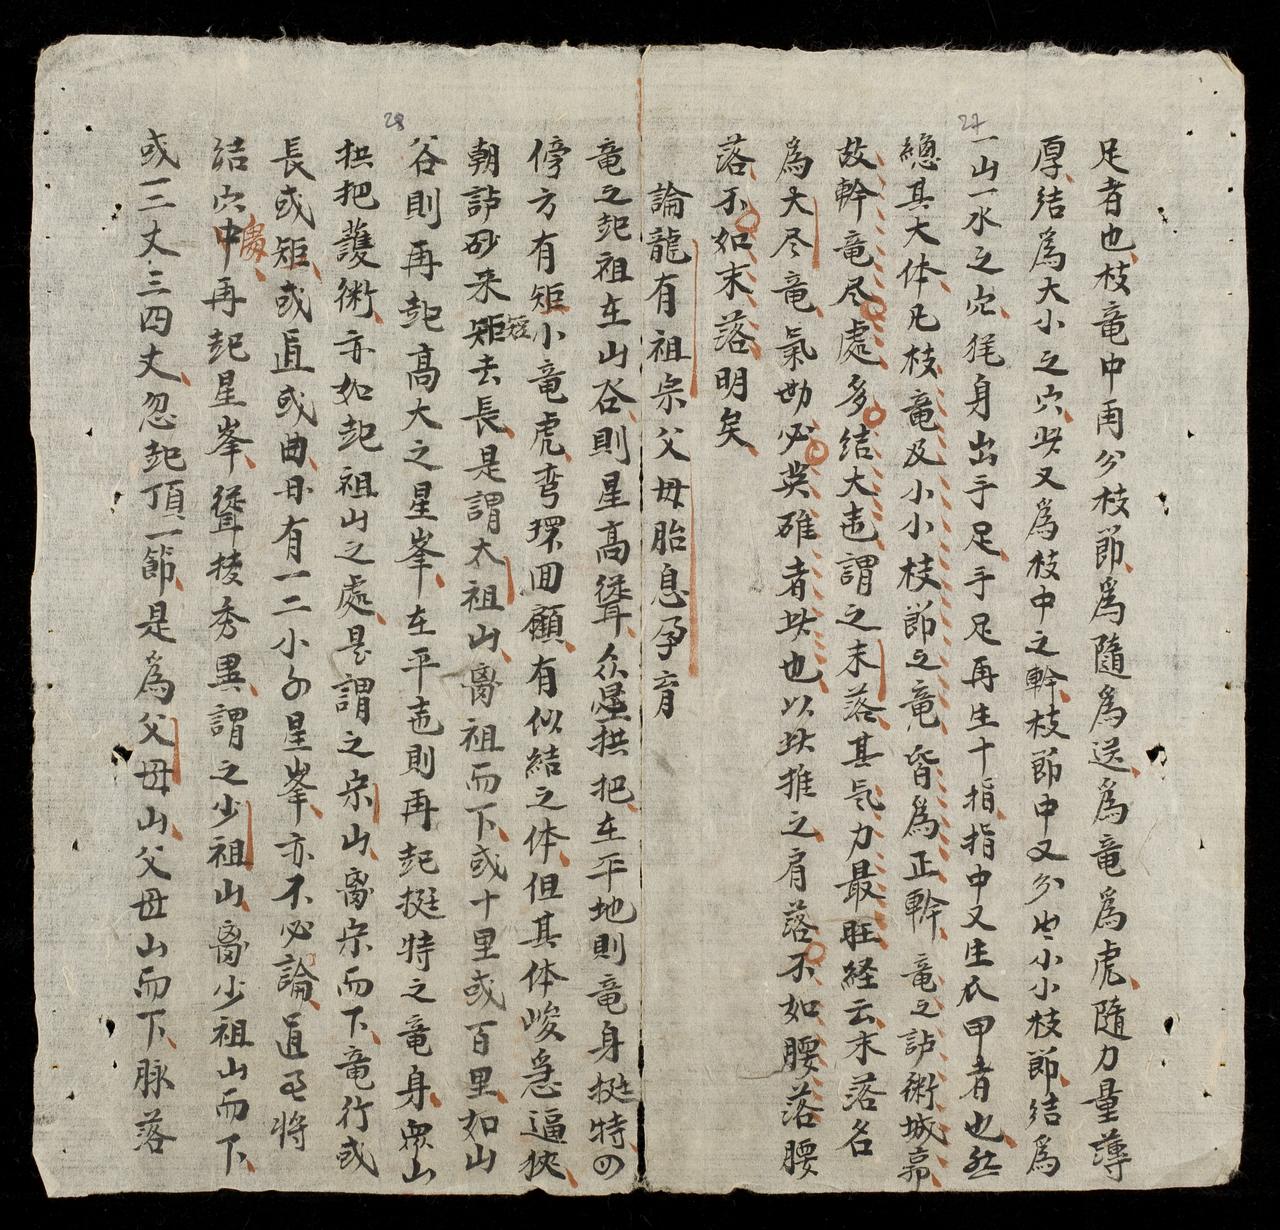 27
足者也枝竜中再分枝節爲隨爲送爲竜爲虎隨力量薄
厚結爲大小之穴此又爲枝中之幹枝節中又分出小小枝節結爲
一山一水之穴身出手足手足再生十指指中又生爪甲者也然
總其大体凡枝竜及小小枝節之竜皆爲正幹竜之城郭
故幹竜尽處多結大地謂之末落其氣力最旺経云末落名
爲大尽竜氣必英雄者此也以此推之肩落不如腰落腰
落不如末落明矣
論龍有祖宗父母胎息孕育
28
竜之起祖在山谷則星高聳众星拱把在平地則竜身挺特四
傍方有矩小竜虎弯環回顧有似結之体但其体峻急逼狹
朝砂来矩短去長是謂太祖山离祖而下或十里或百里如山
谷則再起高大之星峯在平地則再起挺特之竜身衆山
拱把護衛亦如起祖山之處是謂之宗山离宗而下竜行或
長或矩或直或曲毋有一二小小星峯亦不必論直至將
結穴中處再起星峯聳拔秀異謂之少祖山离少祖山而下
或一二丈三四丈忽起頂一節是爲父母山父母山而下脉落